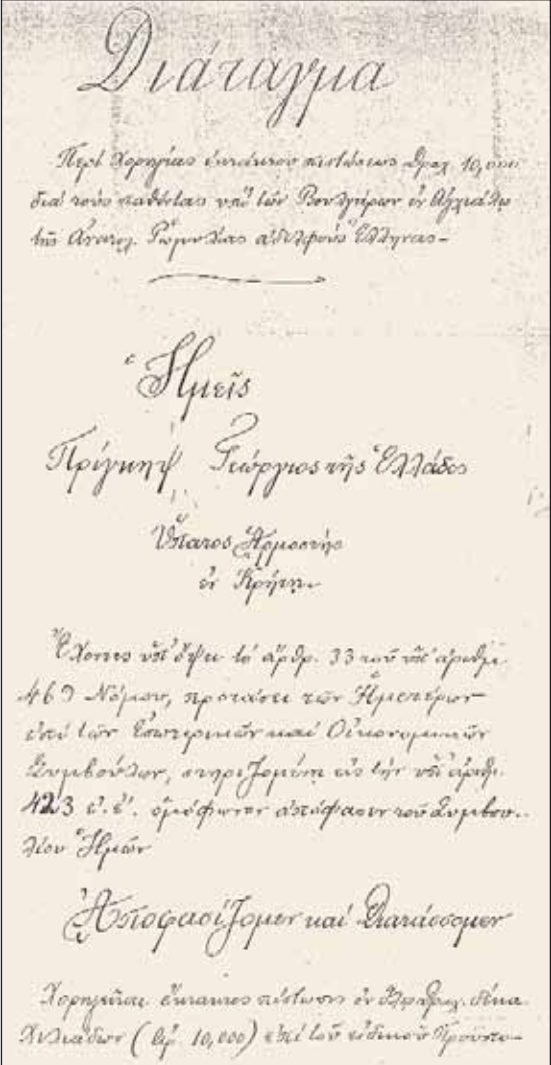 Διάταγμα
Περὶ χορηγίας ἐκτάκτου πιστώσεως δραχ. 10,000
διὰ τοὺς παθόντας ὑπὸ τῶν Βουλγάρων ἐν Ἀγχιάλῳ
τῆς Ἀνατολ. Ῥωμυλίας ἀδελφοὺς Ἕλληνας –
Ἡμεῖς
Πρίγκηψ Γεώργιος τῆς Ἑλλάδος
Ὕπατος Ἁρμοστὴς
ἐν Κρήτῃ.
Ἔχοντες ὑπ' ὄψει τὸ ἄρθρ. 33 τοῦ ὑπ' ἀριθμ.
469 Νόμου, προτάσει τῶν Ἡμετέρων
ἐπὶ τῶν Ἐσωτερικῶν καὶ Οἰκονομικῶν
Συμβούλων, στηριζομένῃ εἰς τὴν ὑπ' ἀριθ.
423 ἐ.ἔ. ὁμόφωνον ἀπόφασιν τοῦ Συμβου-
λίου Ἡμῶν
Ἀποφασίζομεν καὶ Διατάσσομεν
Χορηγεῖται ἔκτακτος πίστωσις ἐν δραχ. δέκα
χιλιάδων (δρ. 10,000) ἐπὶ τοῦ εἰδικοῦ Προϋπο-